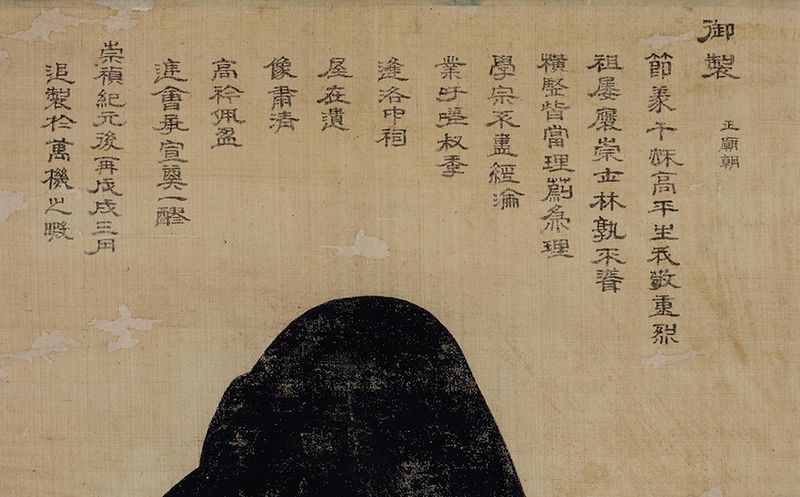 御製
正廟朝
節義千秋高平生我敬重烈
祖屢褒崇士林孰不聳
橫竪皆當理蔚爲理
學宗哀盡經綸
業于嗟叔季
逢洛中祠
屋在遺
像肅清
高衿佩盈
筵會承宣奠一醪
崇禎紀元後再戊戌三月
追製於萬機之暇